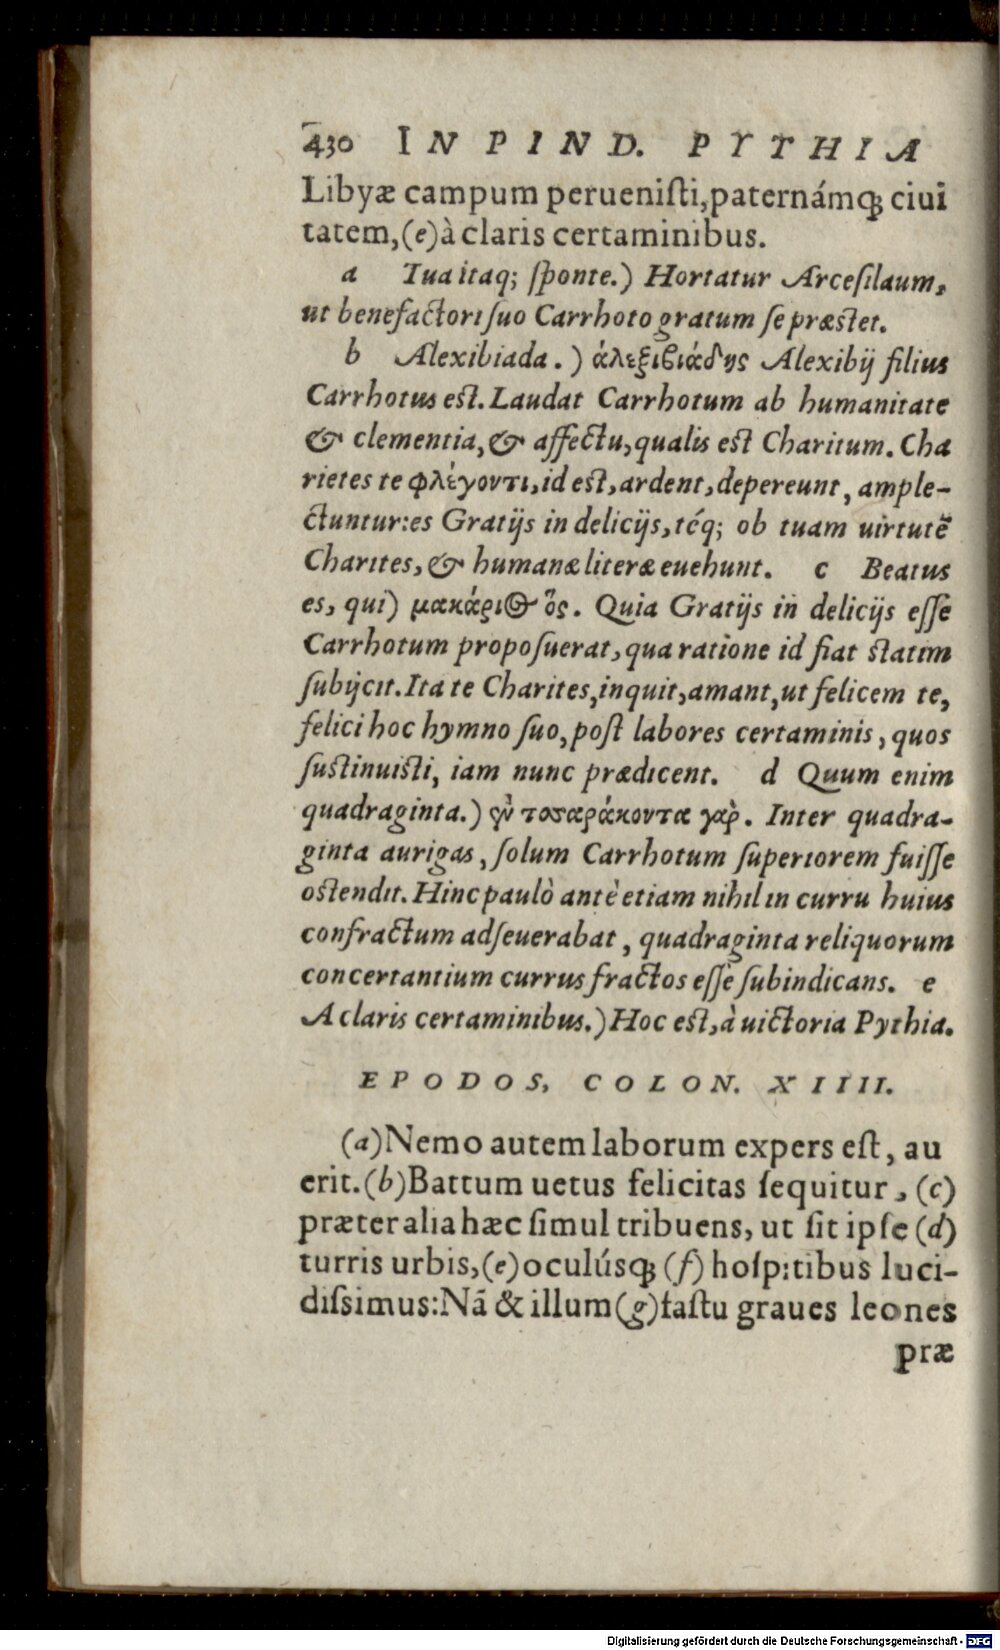 430 IN PIND. PYTHIA
Libyæ campum perueniſti,paternámq; ciui
tatem,(e)à claris certaminibus.
a Tua itaq; ſponte.) Hortatur Arceſilaum,
ut benefactori ſuo Carrhoto gratum ſe præſtet.
b Alexibiada.) ἀλεξιβιάδης Alexibij filius
Carrhotus eſt. Laudat Carrhotum ab humanitate
& clementia,& affectu,qualis eſt Charitum. Cha
rietes te φλέγοντι,id eſt,ardent,depereunt, ample-
ctuntur:es Gratijs in delicijs,téq; ob tuam uirtutē
Charites,& humanæ literæ euehunt. c Beatus
es, qui) μακάριος ὃς. Quia Gratijs in delicijs eſſe
Carrhotum propoſuerat,qua ratione id fiat ſtatim
ſubijcit. Ita te Charites,inquit,amant,ut felicem te,
felici hoc hymno ſuo,poſt labores certaminis, quos
ſuſtinuiſti, iam nunc prædicent. d Quum enim
quadraginta.) ἐν τοσαράκοντα γὰρ. Inter quadra-
ginta aurigas, ſolum Carrhotum ſuperiorem fuiſſe
oſtendit. Hinc paulò antè etiam nihil in curru huius
confractum adſeuerabat, quadraginta reliquorum
concertantium currus fractos eſſe ſubindicans. e
A claris certaminibus.) Hoc eſt,à uictoria Pythia.
EPODOS, COLON. XIIII.
(a)Nemo autem laborum expers eſt, au
erit.(b)Battum uetus felicitas ſequitur, (c)
præter alia hæc ſimul tribuens, ut ſit ipſe (d)
turris urbis,(e)oculúsq; (f) hoſpitibus luci-
diſsimus:Nā & illum(g)faſtu graues leones
præ
Digitalisierung gefördert durch die Deutsche Forschungsgemeinschaft - DFG